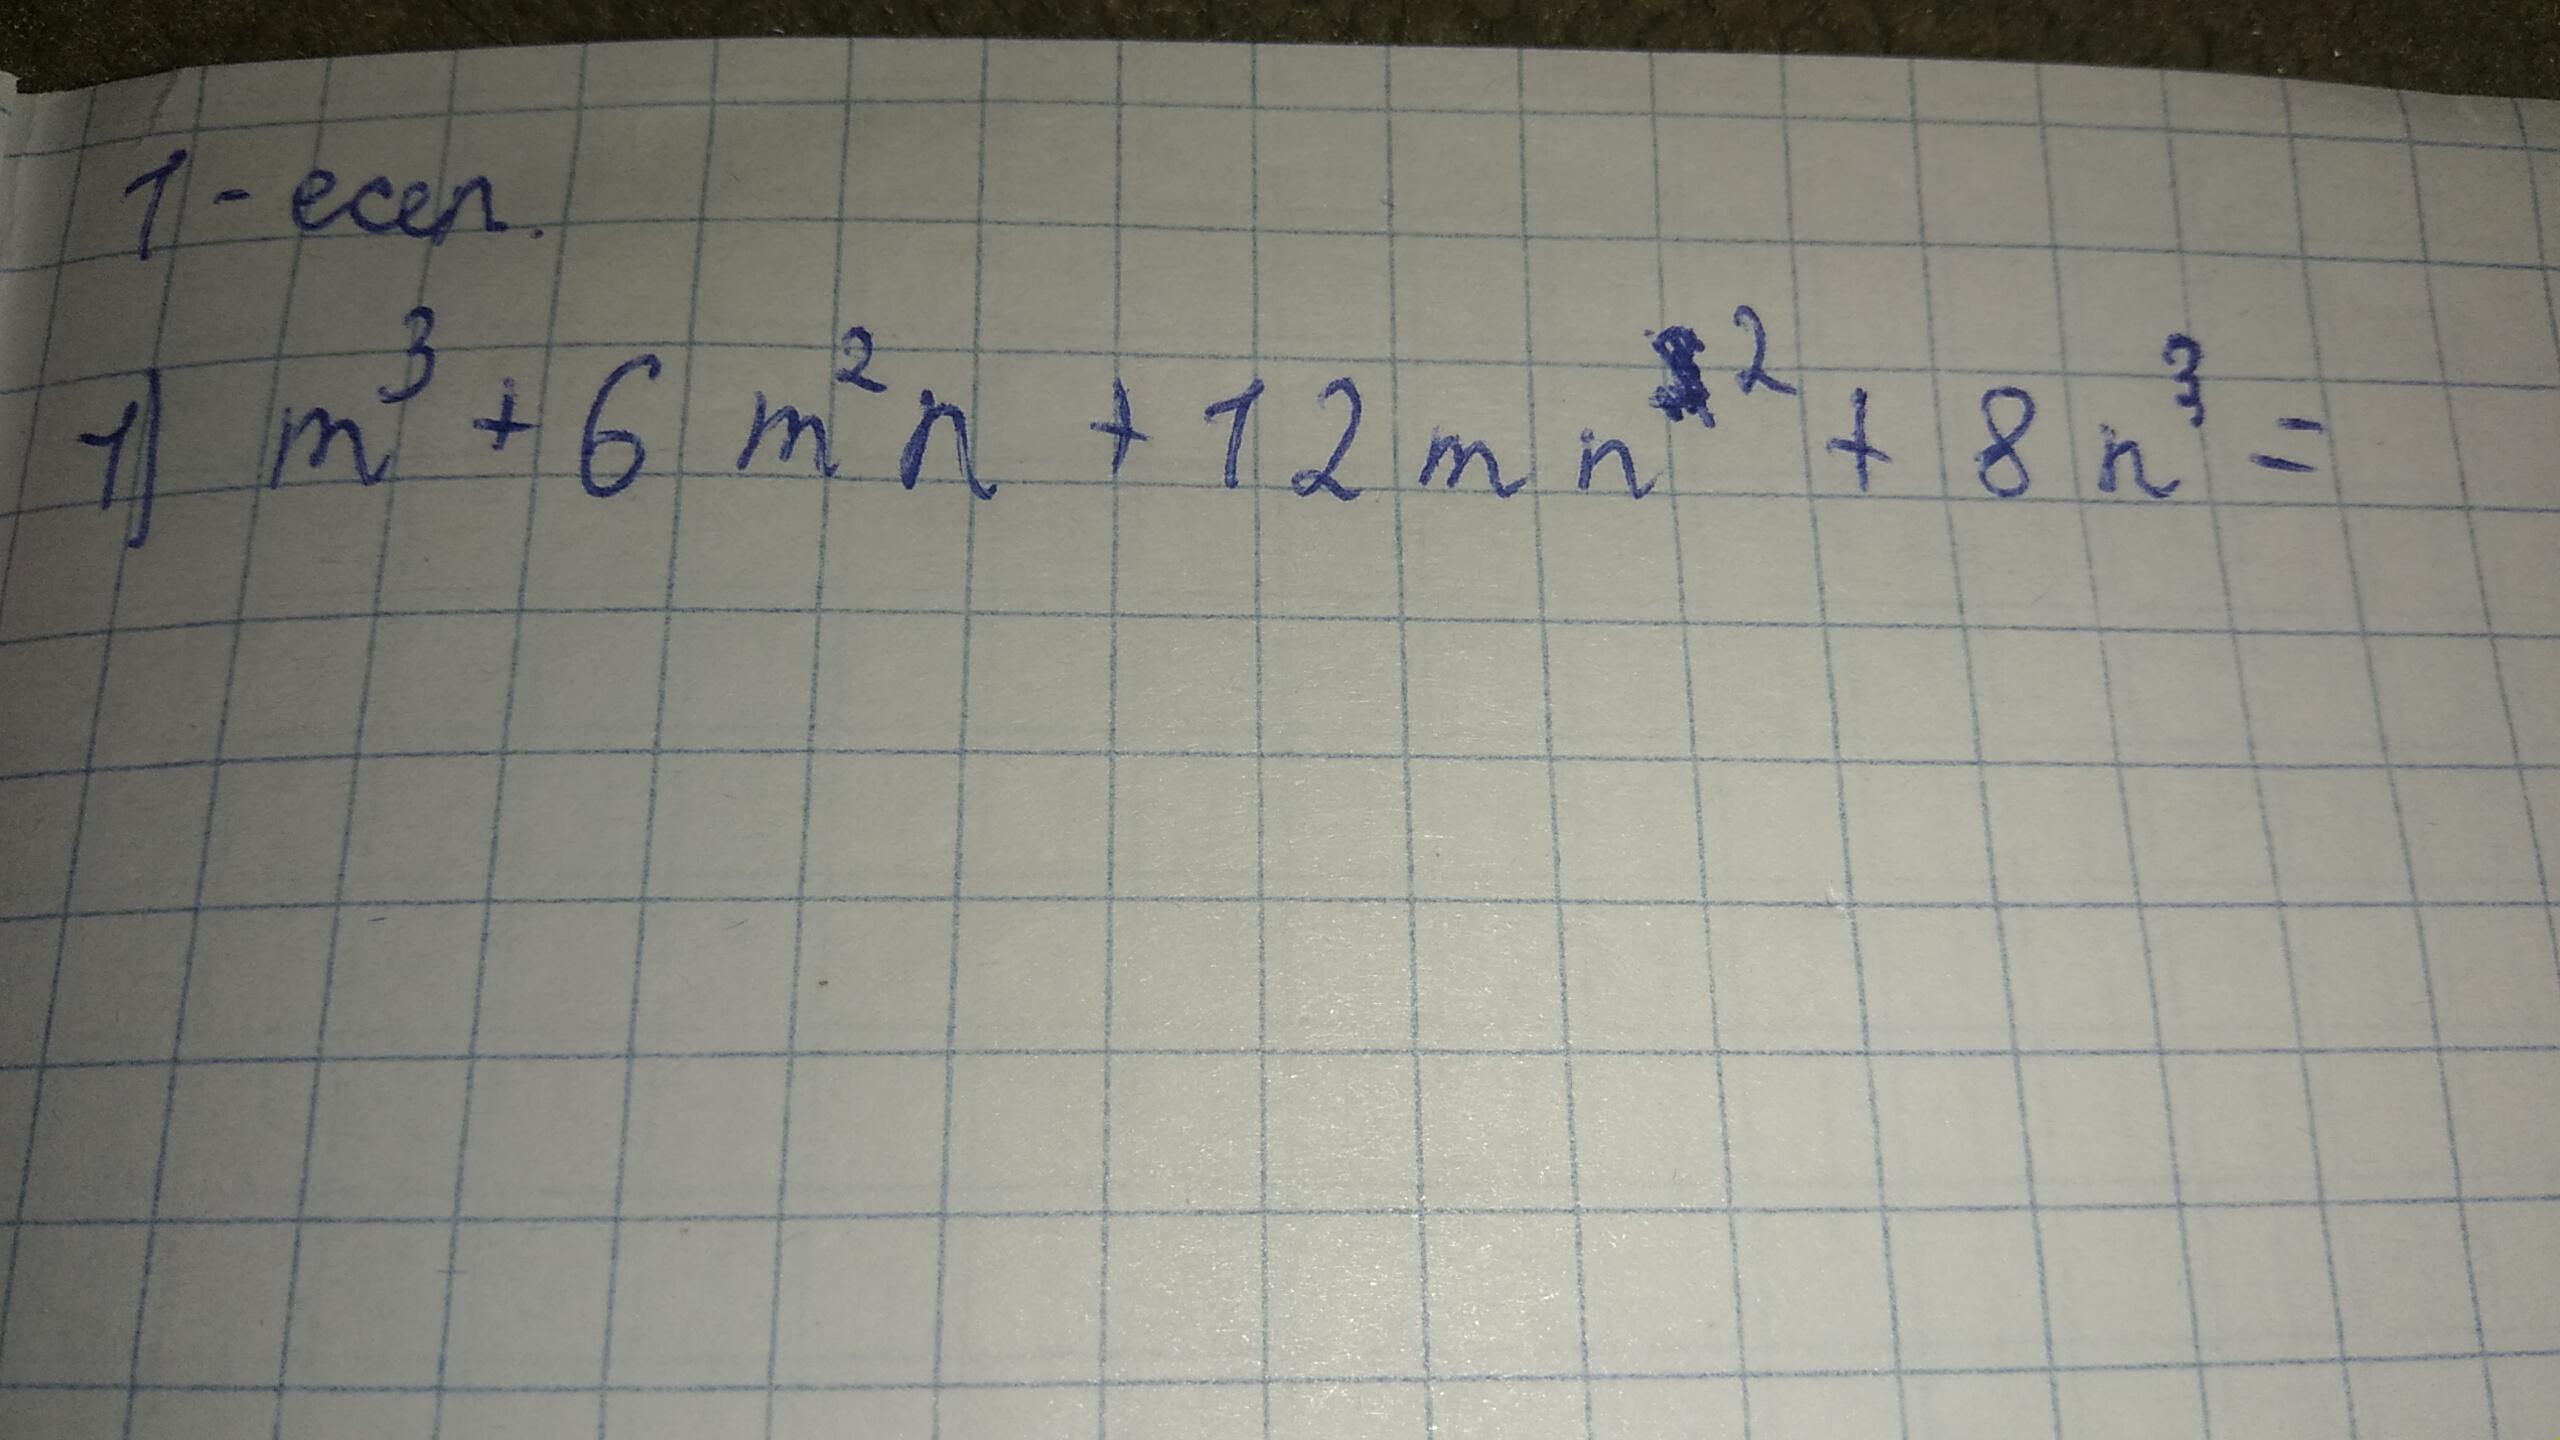 1-есеп.
1) m³ + 6 m²n + 12 m n² + 8 n³ =